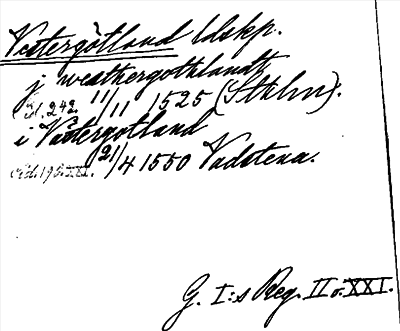 Vestergötland ldskp.
j westhergothlandt
sid. 242. 11/11 1525 (Sthlm).
i Vastergotland
sid. 196. 21/4 1550 Vadstena.
G. I:s Reg. II o. XXI.